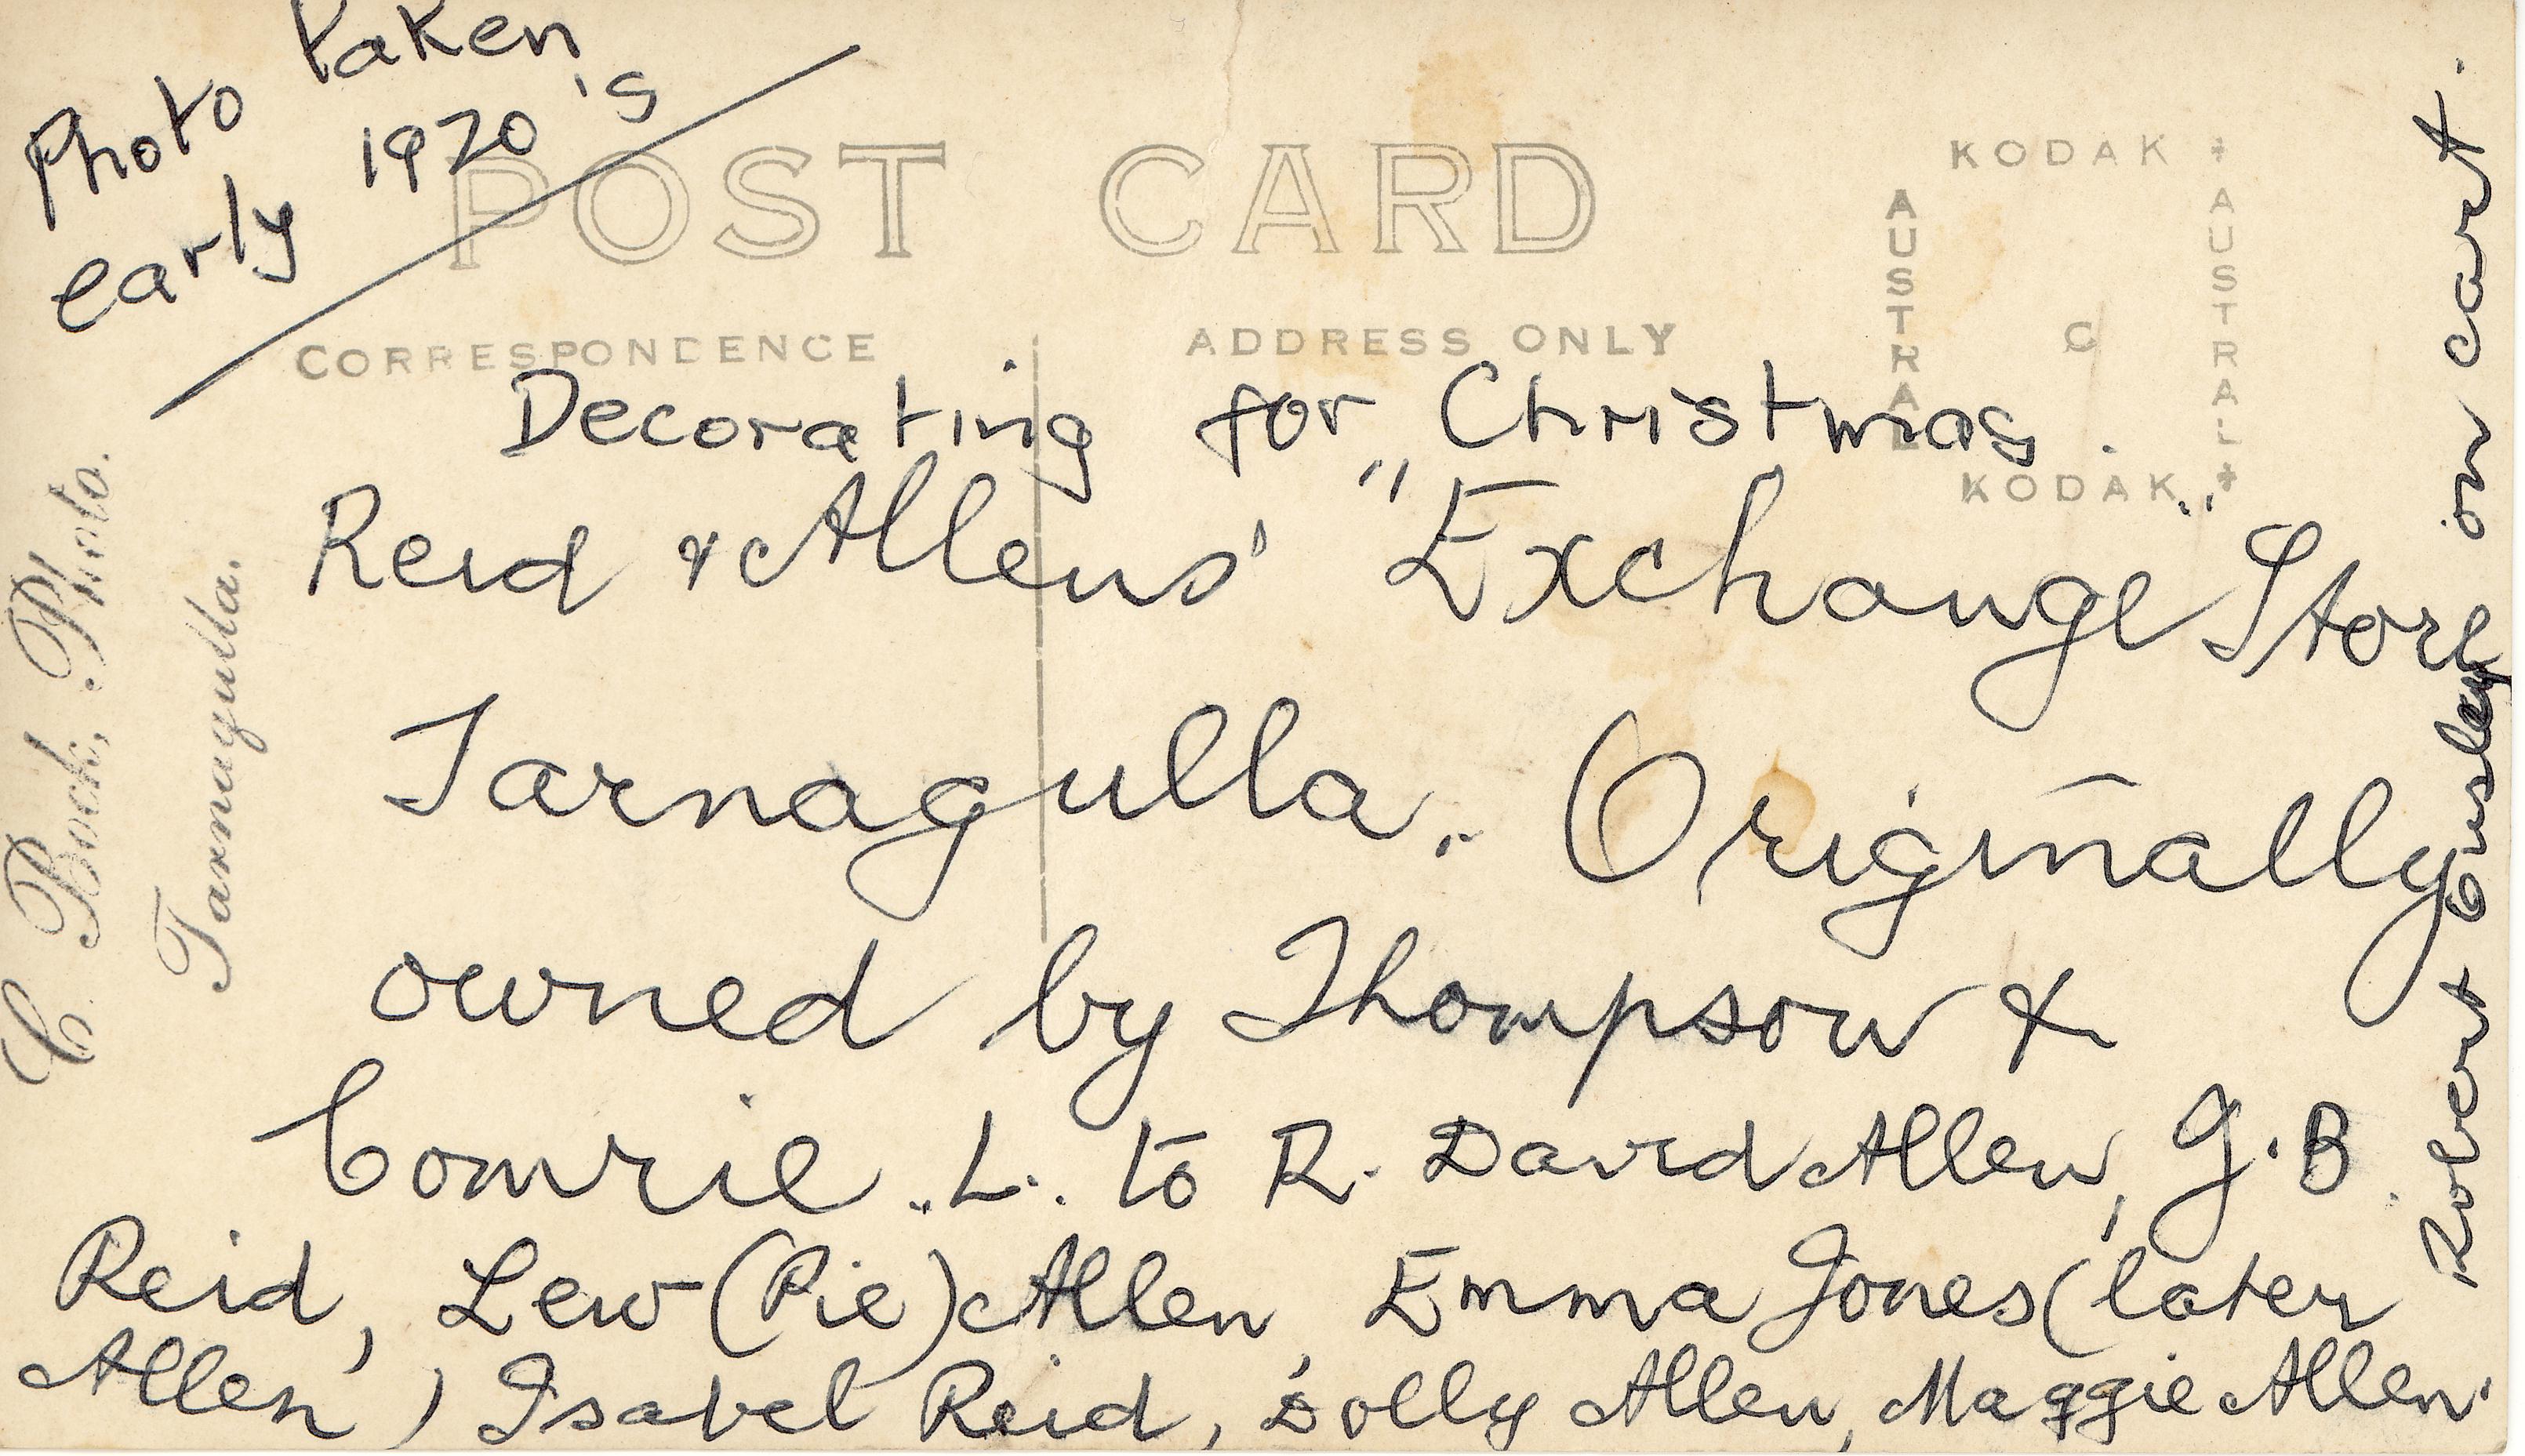 Photo taken
early 1920's
POST CARD
KODAK
AUSTRAL
AUSTRAL
KODAK
CORRESPONDENCE
ADDRESS ONLY
C. Bock, Photo.
Tarnagulla.
Decorating for Christmas.
Reid & Allens' "Exchange" Store
Tarnagulla. Originally
owned by Thompson &
Comrie. L. to R. David Allen, G.B.
Reid, Lew (Pie) Allen, Emma Jones (later
Allen) Isabel Reid, Dolly Allen, Maggie Allen.
Robert Ousley on cart.